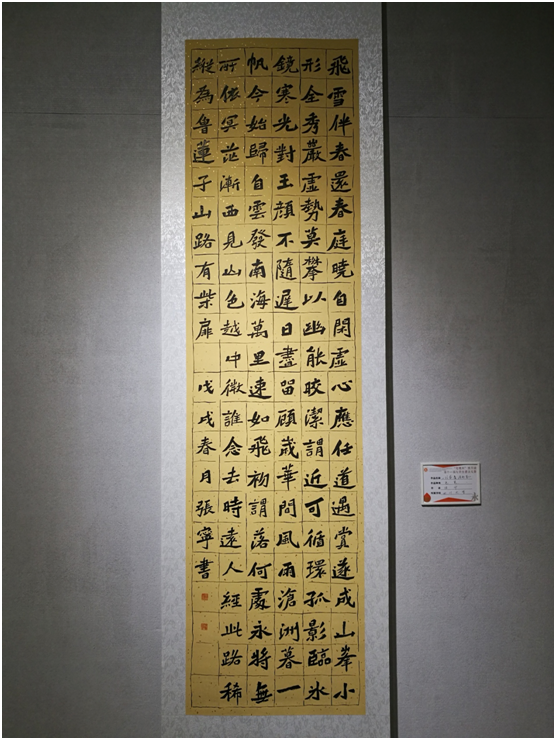 飛雪伴春還春庭曉自閑虛心應任道遇賞遂成山峯小
形全秀嚴虛勢莫攀以幽能皎潔謂近可循環孤影臨氷
鏡寒光對玉顏不隨遲日盡留顧歲華間風雨滄洲暮一
帆今始歸自雲發南海萬里速如飛初謂落何處永將無
所依冥茫漸西見山色越中微誰念去時遠人經此路稀
縱為魯蓮子山路有柴扉 戊戌春月張寧書